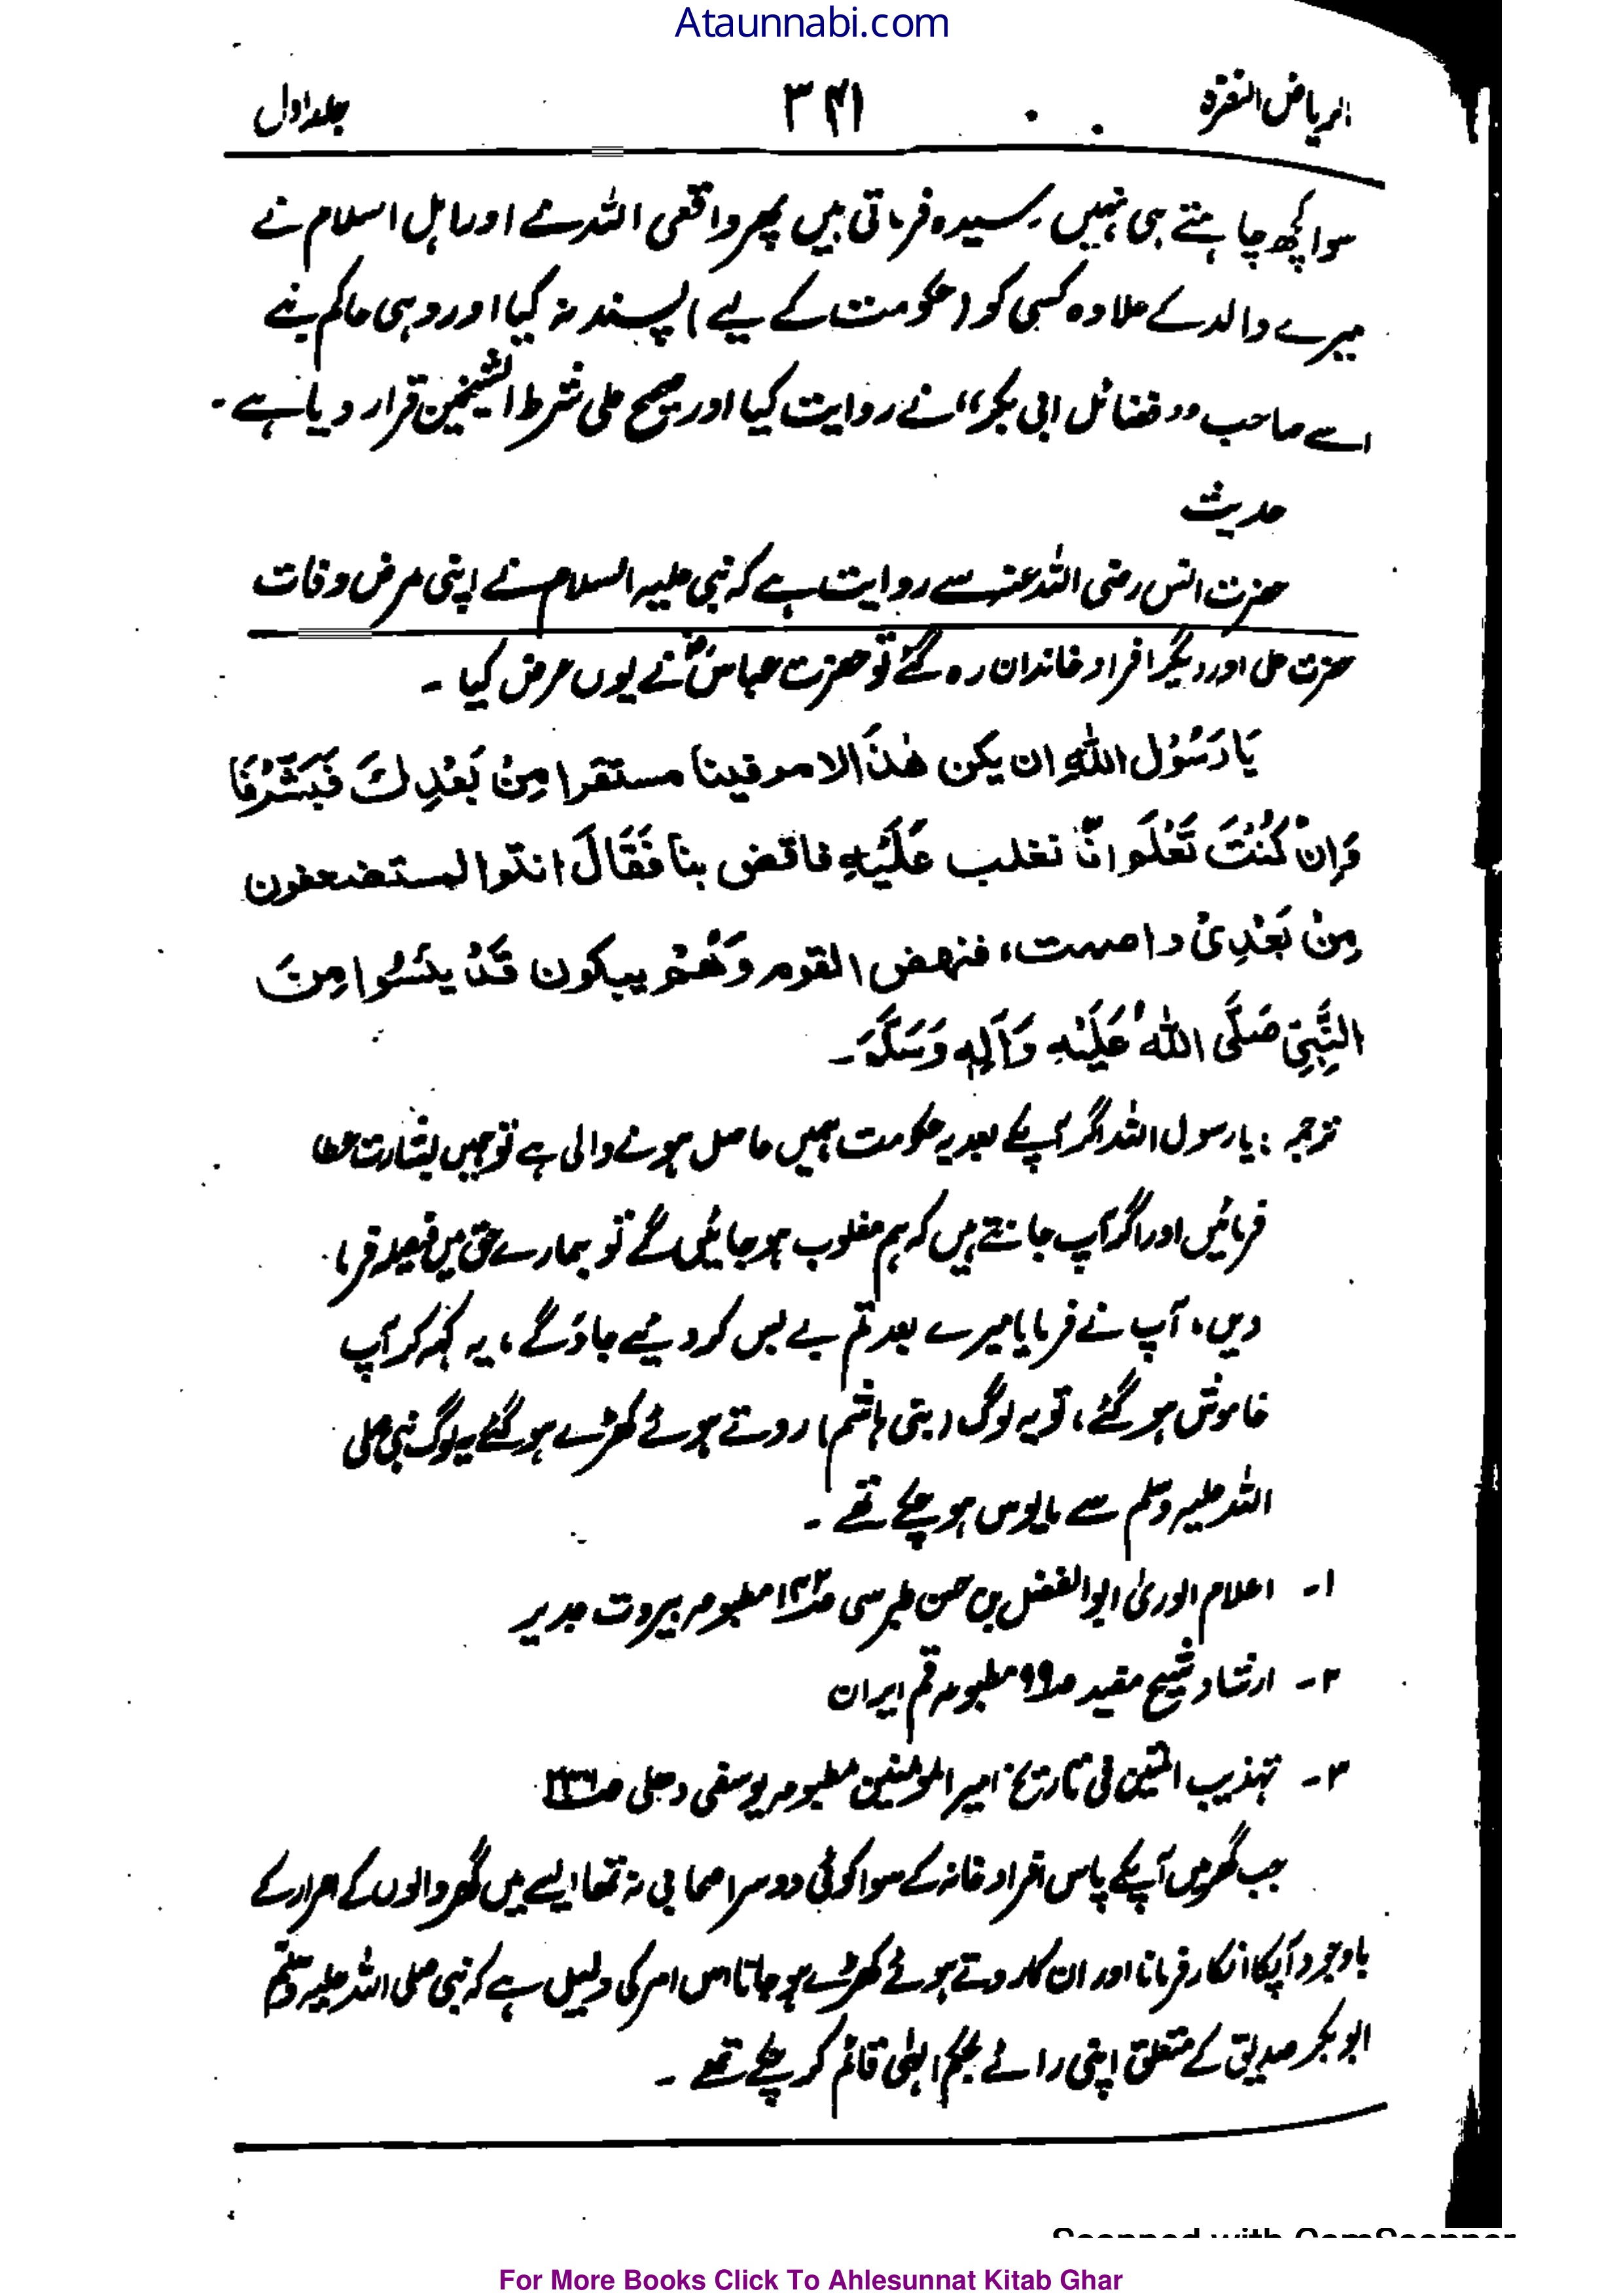 Ataunnabi.com
الریاض النضرۃ ۳۴۱ جلد اول
سوا کچھ چاہتے ہی نہیں۔ سیدہ فرماتی ہیں پھر واقعی اللہ نے اور اہل اسلام نے
میرے والد کے علاوہ کسی کو (حکومت کے لیے) پسند نہ کیا اور وہی حاکم بنے
اسے صاحب ”فضائل ابی بکر“ نے روایت کیا اور صحیح علی شرط الشیخین قرار دیا ہے۔
حدیث
حضرت انس رضی اللہ عنہ سے روایت ہے کہ نبی علیہ السلام نے اپنی مرض وفات
حضرت علی اور دیگر افراد خاندان رہ گئے تو حضرت عباسؓ نے یوں عرض کیا ۔
يَا رَسُوْلَ اللّٰهِ ان يكن هٰذَا الامر فينا مستقرا مِنْ بَعْدِكَ فَبَشِّرْنَا
وَاِنْ كُنْتَ تَعْلَمُ اَنَّا نغلب عَلَيْهِ فاقض بنا فَقَالَ انتم المستضعفون
مِنْ بَعْدِىْ واصمت، فنهض القوم وَهُمْ يبكون قَدْ يئسُوا مِنَ
النَّبِيِّ صَلَّى اللّٰهُ عَلَيْهِ وَآلِهٖ وَسَلَّمَ۔
ترجمہ : یا رسول اللہ اگر آپکے بعد یہ حکومت ہمیں حاصل ہونے والی ہے تو ہمیں بشارت عطا
فرمائیں اور اگر آپ جانتے ہیں کہ ہم مغلوب ہو جائیں گے تو ہمارے حق میں فیصلہ فرما
دیں، آپ نے فرمایا میرے بعد تم بے بس کر دیئے جاؤ گے، یہ کہہ کر آپ
خاموش ہو گئے، تو یہ لوگ (بنی ہاشم) روتے ہوئے کھڑے ہو گئے یہ لوگ نبی صلی
اللہ علیہ وسلم سے مایوس ہو چکے تھے ۔
۱۔ اعلام الوریٰ ابو الفضل بن حسن طبرسی صـ۱۴۲ مطبوعہ بیروت جدید
۲۔ ارشاد شیخ مفید صـ۹۹ مطبوعہ قم ایران
۳۔ تہذیب المتین فی تاریخ امیر المؤمنین مطبوعہ یوسفی دہلی صـ۲۳۶
جب گھر میں آپکے پاس افراد خانہ کے سوا کوئی دوسرا صحابی نہ تھا ایسے میں گھر والوں کے اصرار کے
باوجود آپکا انکار فرمانا اور ان کا روتے ہوئے کھڑے ہو جانا اس امر کی دلیل ہے کہ نبی صلی اللہ علیہ وسلم
ابو بکر صدیق کے متعلق اپنی رائے بحکم الٰہی قائم کر چکے تھے ۔
For More Books Click To Ahlesunnat Kitab Ghar